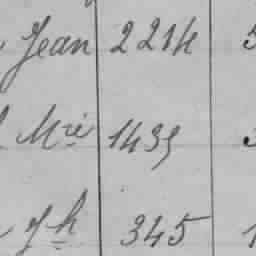 Jean 2214 5
Mie 1435
Jh 345 1